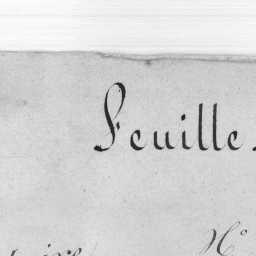 Feuille.
N°